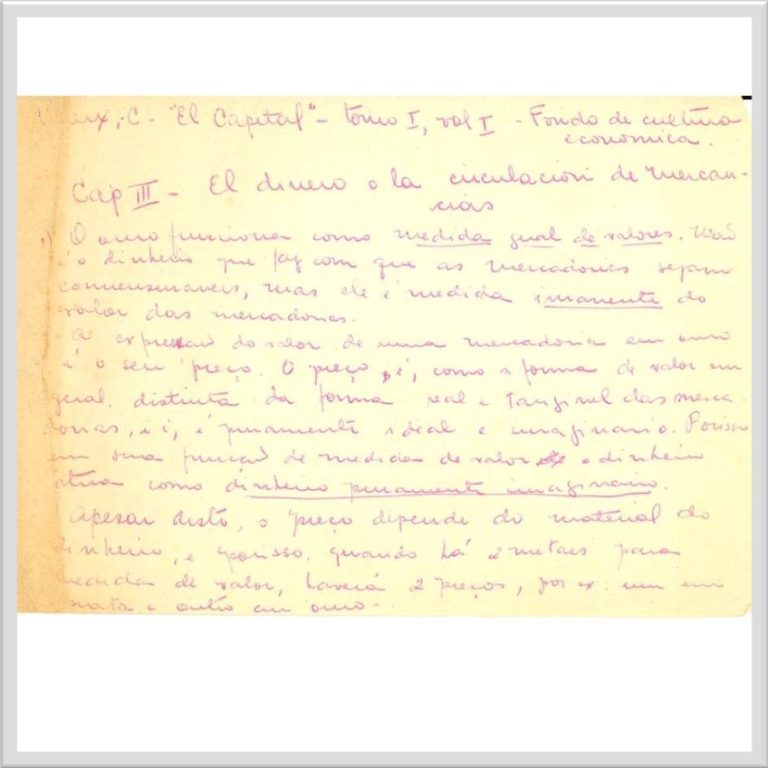 Marx, C - "El Capital" - tomo I, vol I - Fondo de cultura
economica.
Cap III - El dinero o la circulacion de mercan-
cias
1) O ouro funciona como medida geral de valores. Não
é o dinheiro que faz com que as mercadorias sejam
comensuraveis, mas ele é medida imanente do
valor das mercadorias.
A expressão do valor de uma mercadoria em ouro
é o seu preço. O preço, é, como a forma de valor em
geral, distinta da forma real e tangivel das merca-
dorias, i é, é puramente ideal e imaginario. Porisso
em sua função de medida de valor o dinheiro
atua como dinheiro puramente imaginario.
Apesar disto, o preço depende do material do
dinheiro, e porisso, quando há 2 metaes para
medida de valor, haverá 2 preços, por ex. um em
prata e outro em ouro.